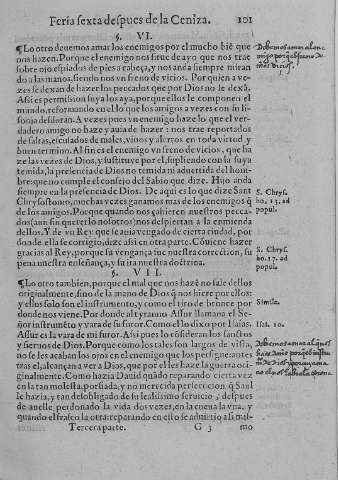 Feria sexta despues de la Ceniza. 101
§. VI.
¶Lo otro deuemos amar los enemigos por el mucho biẽ que
nos hazen. Porque el enemigo nos sirue de ayo que nos trae
sobre ojo espiados de pies a cabeça, y nos anda siempre miran
do a las manos, siendo nos vn freno de vicios. Por quien a ve-
zes se dexan de hazer los peccados que por Dios no le dexã.
Assi es permission suya los aya, porque ellos le componen el
mundo, reformando en el lo que los amigos a vezes con su li-
sonja desdoran. A vezes pues vn enemigo haze lo que el ver-
dadero amigo no haze y auia de hazer: nos trae reportados
de faltas, escusados de males, viuos y alertos en toda virtud y
buen termino. Al fin es el enemigo vn freno de vicios, que ha
ze las vezes de Dios, y sustituye por el, supliendo con la suya
temida, la presencia de Dios no temida ni aduertida del hom-
bre: que no cumple el consejo del Sabio que dize. Hijo anda
siempre en la presencia de Dios. De aqui es lo que dize Sant
Chrysostomo, muchas vezes ganamos mas de los enemigos q̃
de los amigos. Porque quando nos çahieren nuestros pecca-
dos (aun sin quererlo nosotros) nos despiertan a la emienda
dellos. Y de vn Rey que se auia vengado de cierta ciudad, por
donde ella se corrigio, dize assi en otra parte. Cõuiene hazer
gracias al Rey, porque su vengança fue nuestra correction, su
pena nuestra enseñança, y su ira nuestra doctrina.
S. Chrys.
ho. 13. ad
popul.
S. Chrys.
ho. 17. ad
popul.
§. VII.
¶Lo otro tambien, porque el mal que nos hazẽ no sale dellos
originalmente, sino de la mano de Dios q̃ nos hiere por ellos:
y ellos solo son el instrumento, y como el tiro de bronce por
donde nos viene. Por donde al tyranno Assur llamana el Se-
ñor instrumẽto y vara de su furor. Como lo dixo por Isaias.
Assur es la vara de mi furor. Assi pues lo cõsideran los sanctos
y sieruos de Dios. Porque como los tales son largos de vista,
no se les acaban los ojos en el enemigo que los persigue: antes
tras el, alcançan a ver a Dios, que por el les haze la guerra ori-
ginalmente. Como hazia Dauid quãdo reparando cierta vez
en la tan molesta, porfiada, y no merecida persecucion q̃ Saul
le hazia, y tan desobligado de su lealissimo seruicio, despues
de auelle perdonado la vida dos vezes, en la cueua la vna, y
quando el frasco la otra: reparando en esto se aduirtio assi mis-
Simile.
Isai. 10.
Tercera parte. G 3 mo